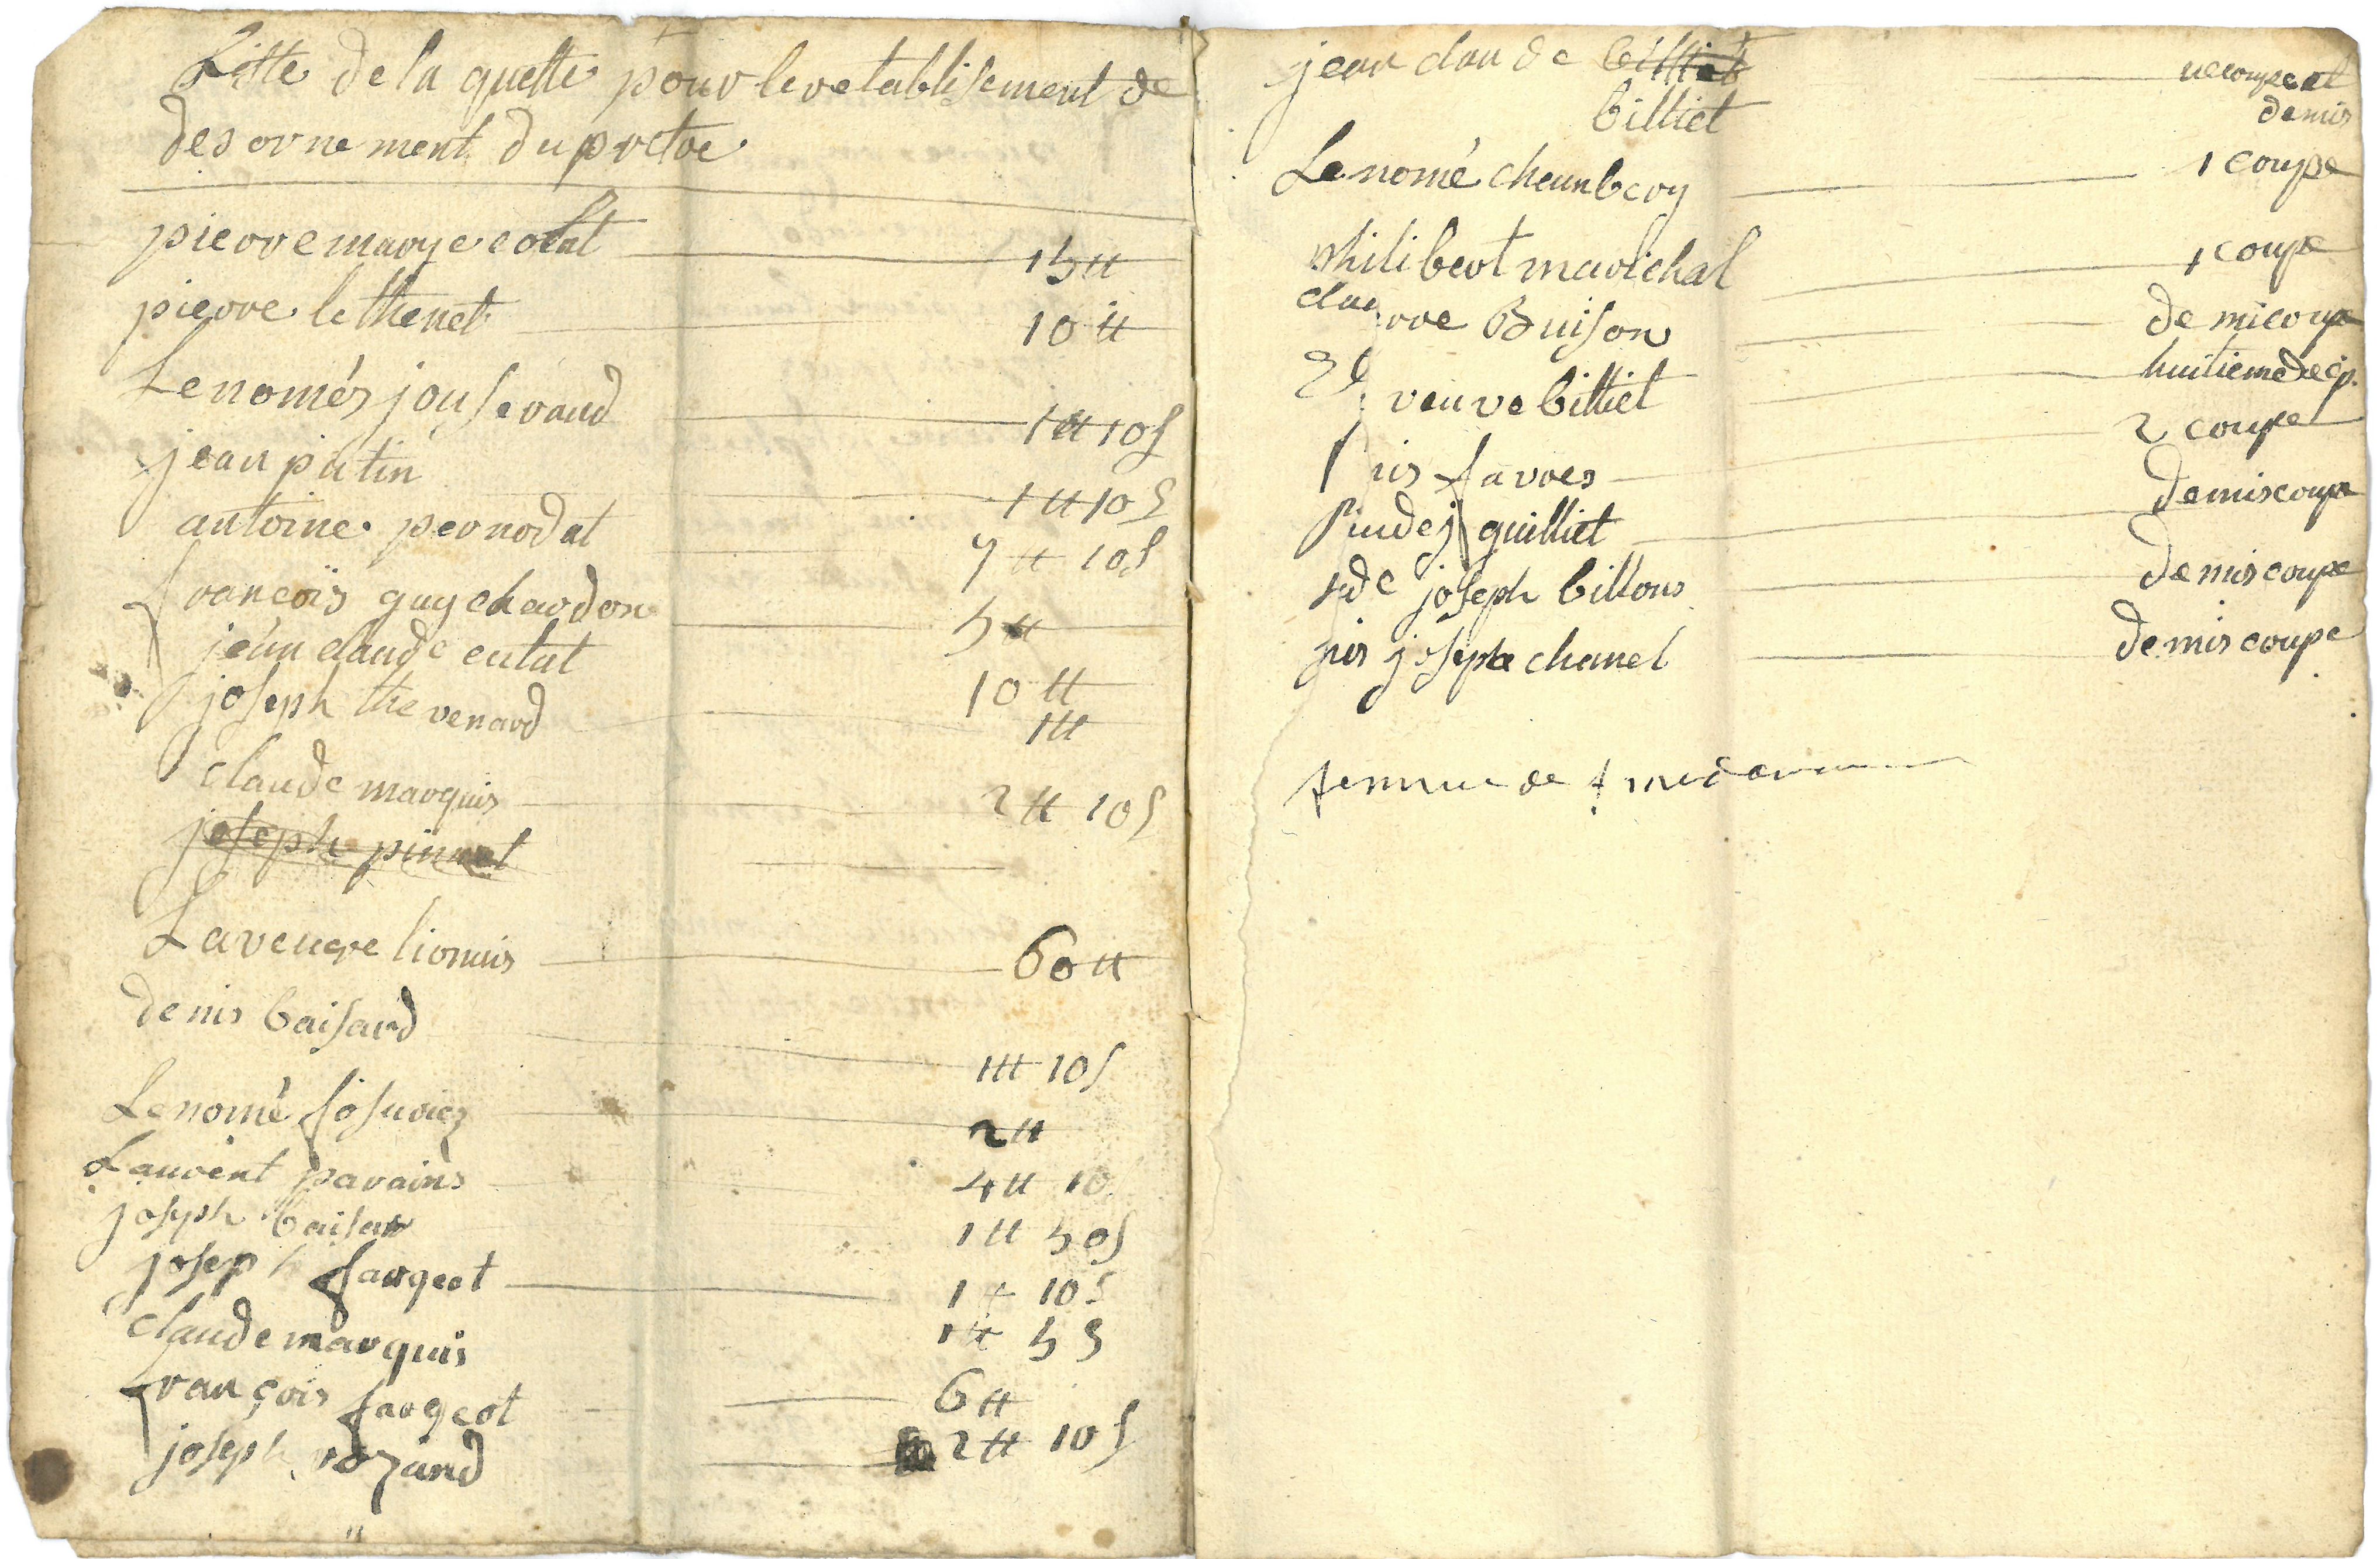 Litte de la quette pour le retablisement de
des ornement du pretre
pierre marye cotat 15 ₶
pierre lethenet 10 ₶
Le només jouseraud 1 ₶ 10 s
jean putin 1 ₶ 10 s
antoine pernodat 7 ₶ 10 s
francois guychardon 5 ₶
jean claude cutat 10 ₶
joseph thevenard 1 ₶
claude marquis 2 ₶ 10 s
joseph pinnet
La veuve lionnis 60 ₶
denis baisard 1 ₶ 10 s
Le nomé 2 ₶
Laurent parains 4 ₶ 10
joseph 1 ₶ 50 s
joseph fargeot 1 ₶ 10 s
claude marquis 1 ₶ 5 s
françois fargeot 6 ₶
joseph rozand 2 ₶ 10 s
jean claude billiet
billiet ue coupe et
demis
Le nomé chambery 1 coupe
philibert marichal 1 coupe
Buison demi coupe
veuve billiet huitieme de cp.
favres 2 coupe
guilliet demis coupe
joseph billons demis coupe
joseph chanel demis coupe